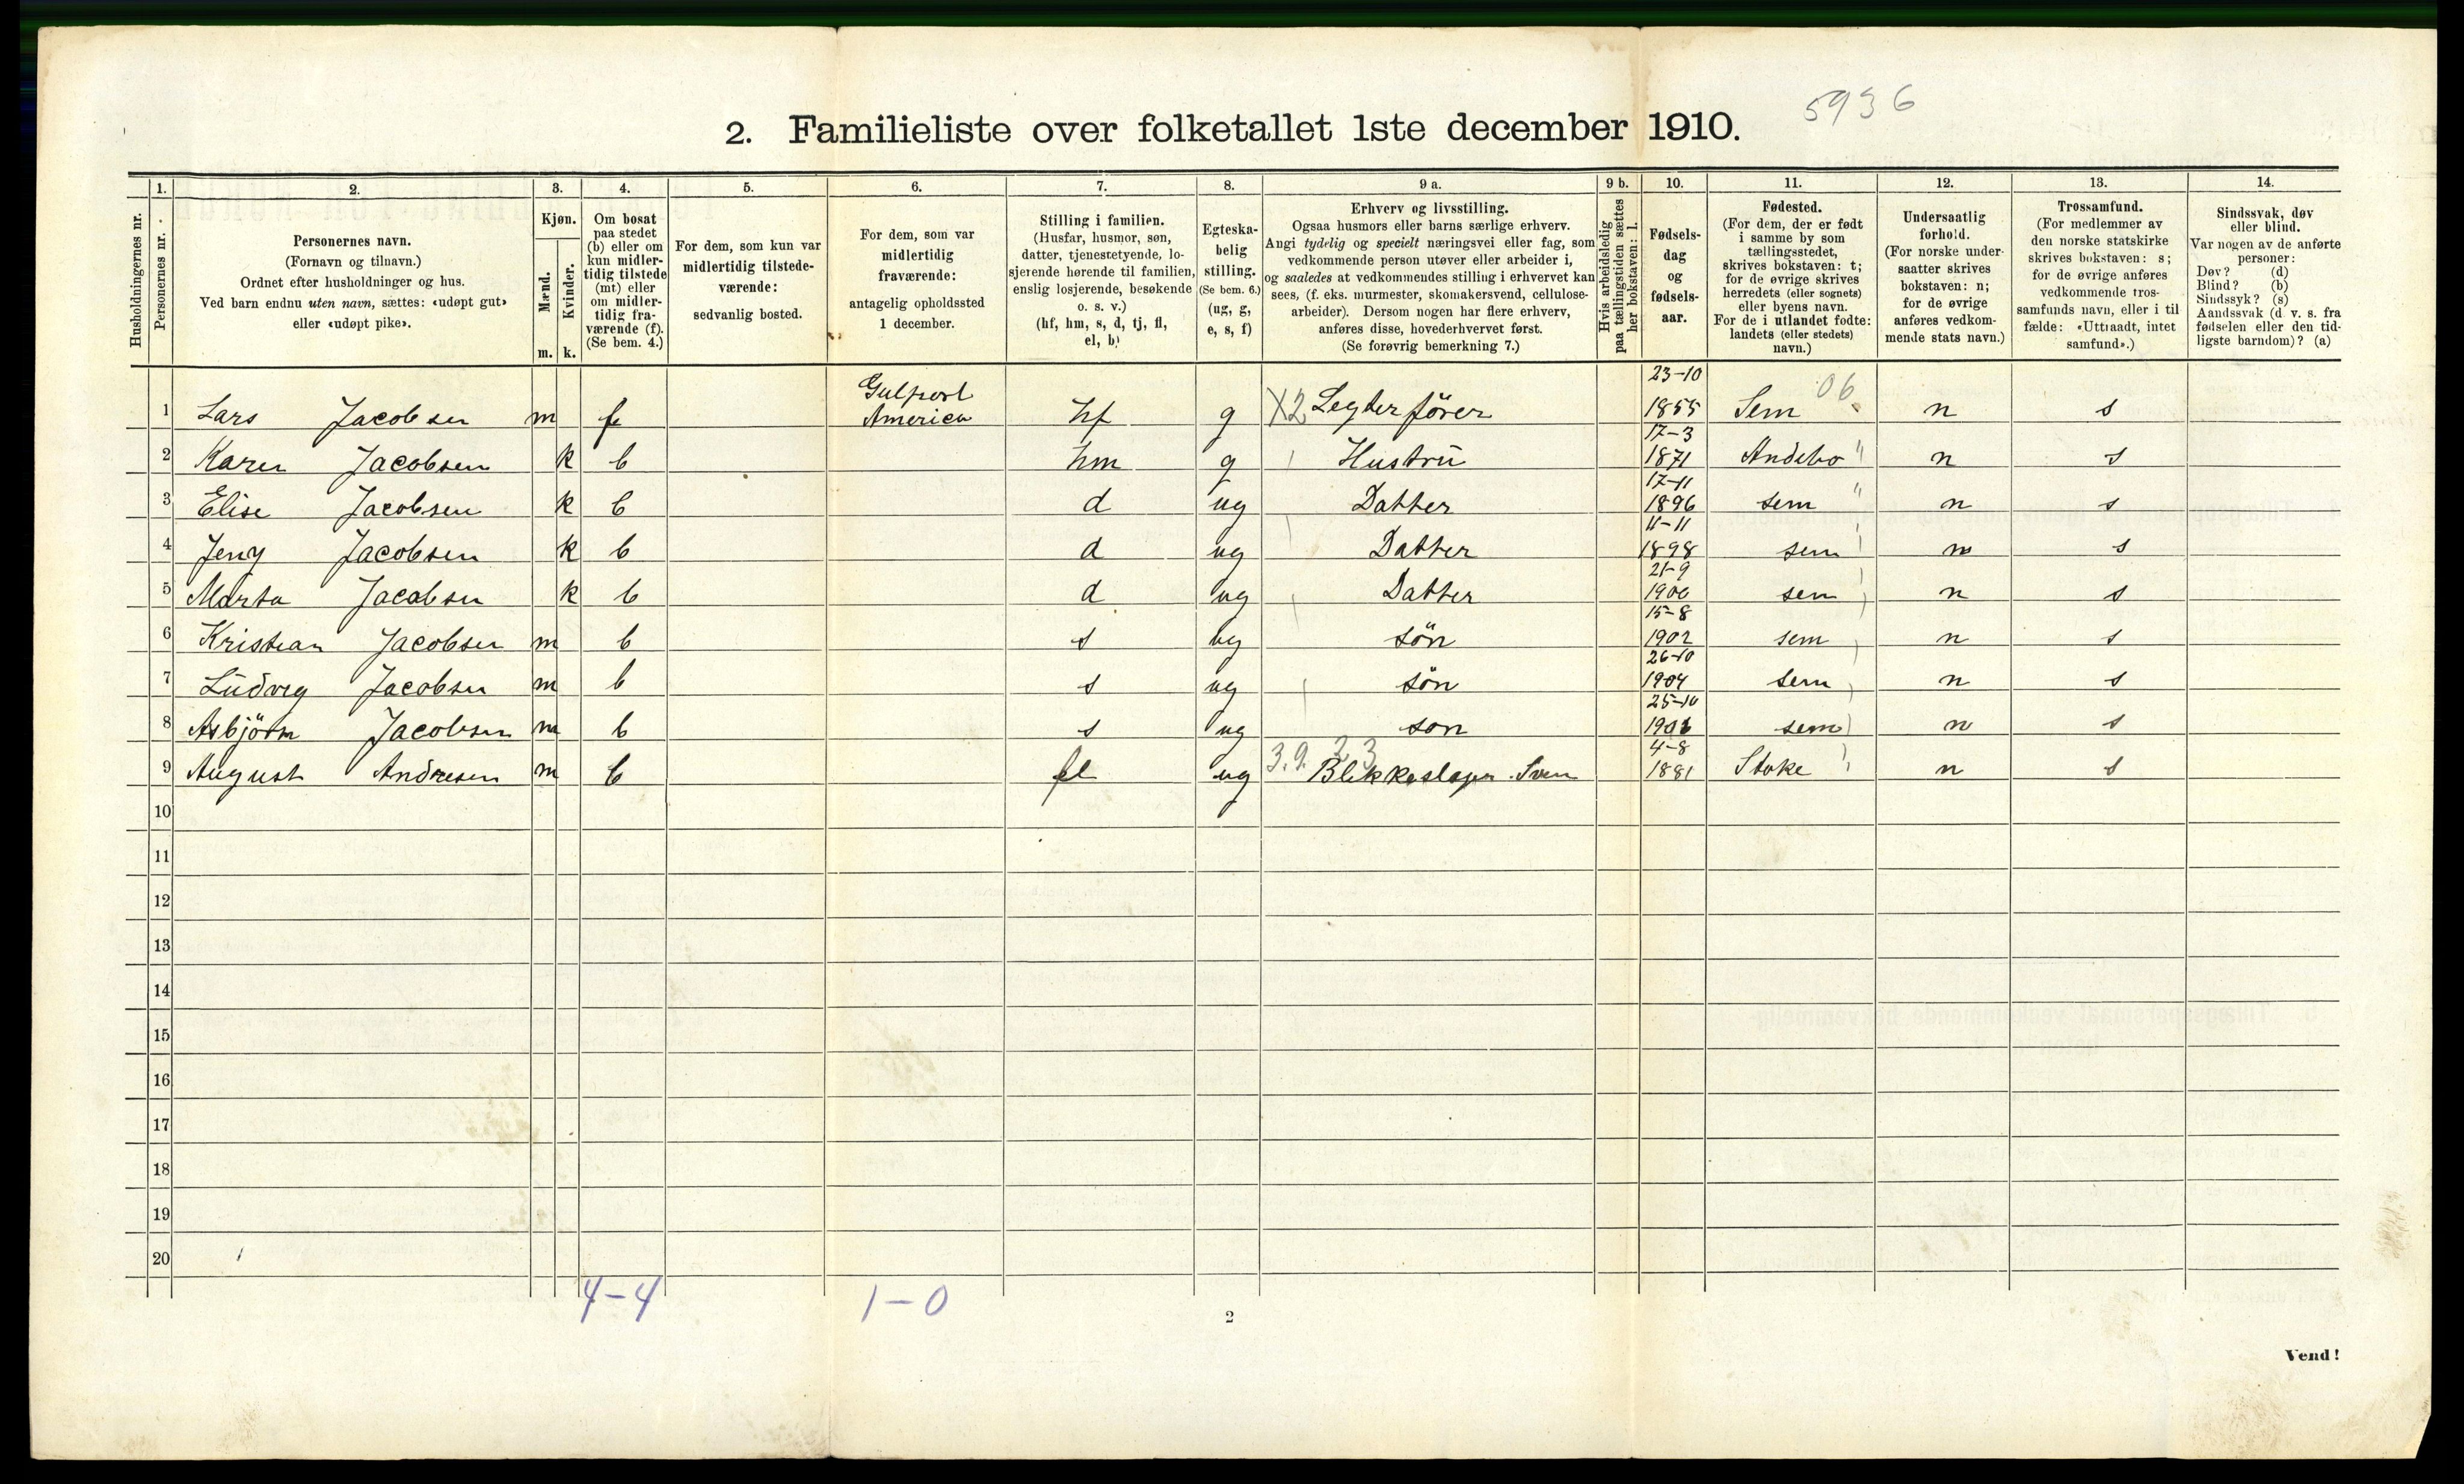 5936
2. Familieliste over folketallet 1ste december 1910.
1. 2. 3. 4. 5. 6. 7. 8. 9 a. 9 b. 10. 11. 12. 13. 14.
Husholdningernes nr.
Personernes nr.
Personernes navn.
(Fornavn og tilnavn.)
Ordnet efter husholdninger og hus.
Ved barn endnu uten navn, sættes: «udøpt gut»
eller «udøpt pike».
Kjøn.
Mænd.
Kvinder.
m. k.
Om bosat
paa stedet
(b) eller om
kun midler-
tidig tilstede
(mt) eller
om midler-
tidig fra-
værende (f).
(Se bem. 4.)
For dem, som kun var
midlertidig tilstede-
værende:
sedvanlig bosted.
For dem, som var
midlertidig
fraværende:
antagelig opholdssted
1 december.
Stilling i familien.
(Husfar, husmor, søn,
datter, tjenestetyende, lo-
sjerende hørende til familien,
enslig losjerende, besøkende
o. s. v.)
(hf, hm, s, d, tj, fl,
el, b)
Egteska-
belig
stilling.
(Se bem. 6.)
(ug, g,
e, s, f)
Erhverv og livsstilling.
Ogsaa husmors eller barns særlige erhverv.
Angi tydelig og specielt næringsvei eller fag, som
vedkommende person utøver eller arbeider i,
og saaledes at vedkommendes stilling i erhvervet kan
sees, (f. eks. murmester, skomakersvend, cellulose-
arbeider). Dersom nogen har flere erhverv,
anføres disse, hovederhvervet først.
(Se forøvrig bemerkning 7.)
Hvis arbeidsledig
paa tællingstiden sættes
her bokstaven: l.
Fødsels-
dag
og
fødsels-
aar.
Fødested.
(For dem, der er født
i samme by som
tællingsstedet,
skrives bokstaven: t;
for de øvrige skrives
herredets (eller sognets)
eller byens navn.
For de i utlandet fødte:
landets (eller stedets)
navn.)
Undersaatlig
forhold.
(For norske under-
saatter skrives
bokstaven: n;
for de øvrige
anføres vedkom-
mende stats navn.)
Trossamfund.
(For medlemmer av
den norske statskirke
skrives bokstaven: s;
for de øvrige anføres
vedkommende tros-
samfunds navn, eller i til
fælde: «Uttraadt, intet
samfund».)
Sindssvak, døv
eller blind.
Var nogen av de anførte
personer:
Døv? (d)
Blind? (b)
Sindssyk? (s)
Aandssvak (d. v. s. fra
fødselen eller den tid-
ligste barndom)? (a)
1 Lars Jacobsen m f Gulport America hf g X2 Legterfører 23-10 1855 Sem 06 n s
2 Karen Jacobsen k b hm g Hustru 17-3 1871 Andebo " n s
3 Elise Jacobsen k b d ug Datter 17-11 1896 sem " n s
4 Jeny Jacobsen k b d ug Datter 11-11 1898 sem n s
5 Marta Jacobsen k b d ug Datter 21-9 1900 sem n s
6 Kristian Jacobsen m b s ug sön 15-8 1902 sem n s
7 Ludvig Jacobsen m b s ug sön 26-10 1904 sem n s
8 Asbjörn Jacobsen m b s ug son 25-10 1906 sem n s
9 August Andresen m b fl ug 3.9. 23 Blikkeslager Sven 4-8 1881 Stoke n s
10
11
12
13
14
15
16
17
18
19
20
4-4 1-0
2
Vend!